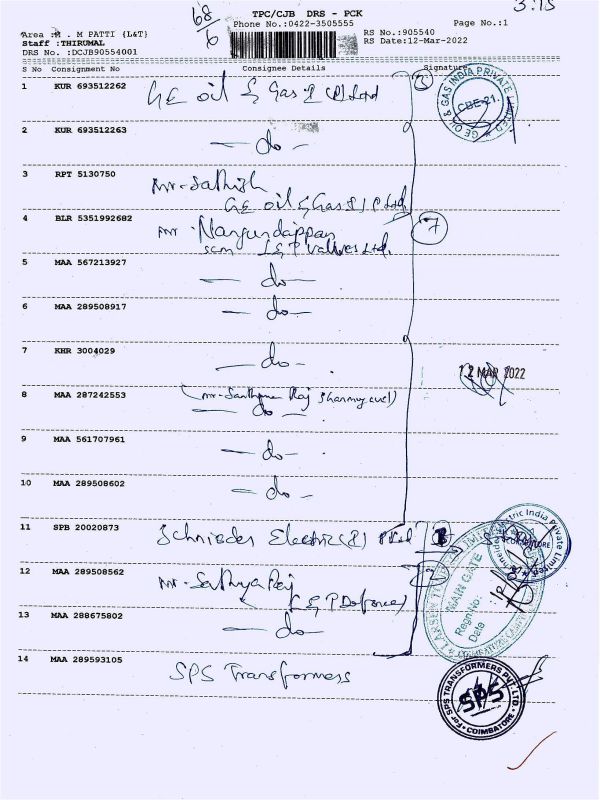 3:15
68/6
TPC/CJB DRS - PCK
Phone No.:0422-3505555
Page No.:1
Area :M . M PATTI {L&T}
Staff :THIRUMAL
DRS No. :DCJB90554001
RS No.:905540
RS Date:12-Mar-2022
S No Consignment No Consignee Details Signature
1 KUR 693512262 GE oil & Gas I (P) Ltd
2
2 KUR 693512263 — do —
3 RPT 5130750 Mr - Sathish
GE oil & Gas I P Ltd
4 BLR 5351992682 Mr. Nanjundappan
scm L&T Valves Ltd.
7
5 MAA 567213927 — do —
6 MAA 289508917 — do —
7 KHR 3004029 — do —
12 MAR 2022
8 MAA 287242553 (Mr - Raj
— do —
9 MAA 561707961 — do —
10 MAA 289508602 — do —
11 SPB 20020873 Schnieder Electric (I) P Ltd
12 MAA 289508562 Mr - Sathya Raj
(L&T Defence)
13 MAA 288675802 — do —
14 MAA 289593105 SPS Transformers
GE OIL & GAS INDIA PRIVATE LIMITED
CBE-21.
Electric India Private Limited
COIMBATORE
MAIN GATE
Regn.No:
Date
For SPS TRANSFORMERS PVT. LTD.
SPS
COIMBATORE